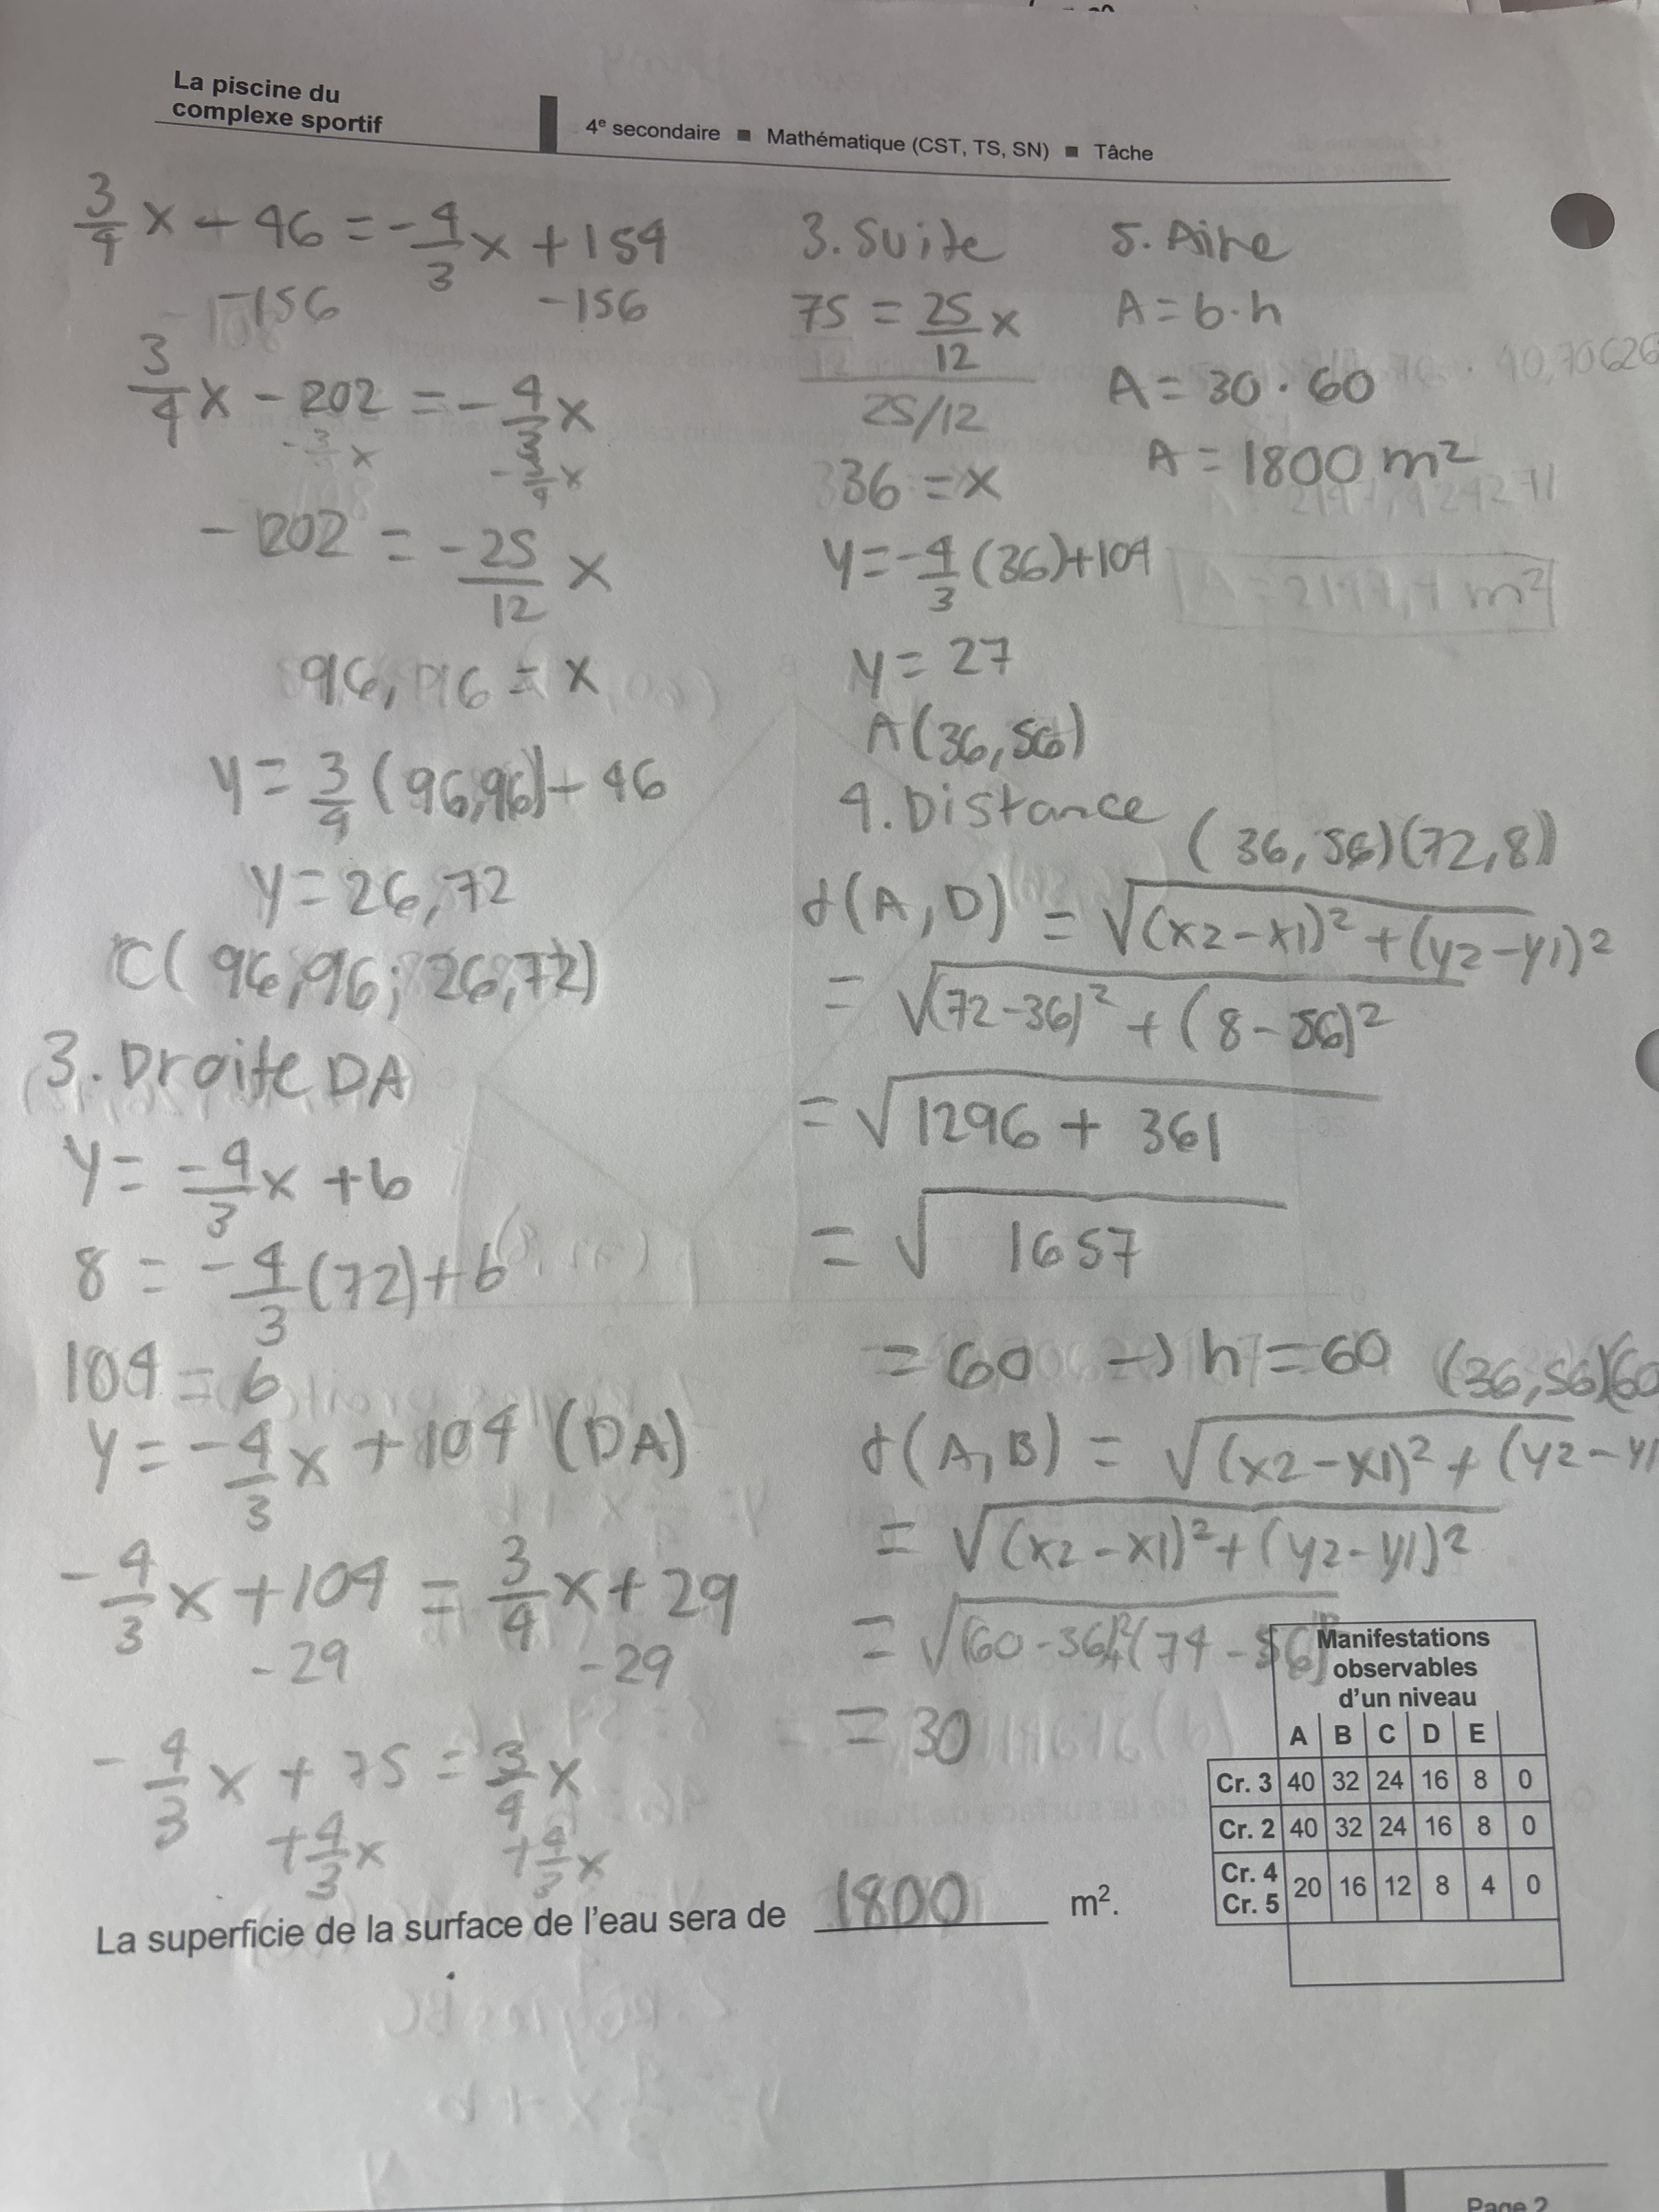 La piscine du
complexe sportif
4e secondaire ■ Mathématique (CST, TS, SN) ■ Tâche
3/4 x - 46 = -4/3 x + 154
-156 -156
3/4 x - 202 = -4/3 x
-3/4 x -3/4 x
-202 = -25/12 x
96,96 = x
y = 3/4 (96,96) - 46
y = 26,72
C( 96,96; 26,72)
3. Droite DA
y = -4/3 x + b
8 = -4/3 (72) + b
104 = b
y = -4/3 x + 104 (DA)
-4/3 x + 104 = 3/4 x + 29
-29 -29
-4/3 x + 75 = 3/4 x
+4/3 x +4/3 x
3. Suite
75 = 25/12 x
25/12
36 = x
y = -4/3 (36) + 104
y = 27
A(36,56)
4. Distance
(36,56)(72,8)
d(A,D) = √(x2-x1)² + (y2-y1)²
= √(72-36)² + (8-56)²
= √1296 + 361
= √1657
= 60 → h = 60
(36,56)(60
d(A,B) = √(x2-x1)² + (y2-y1
= √(x2-x1)² + (y2-y1)²
= √(60-36)² + (74-56)²
= 30
5. Aire
A = b·h
A = 30 · 60
A = 1800 m²
La superficie de la surface de l'eau sera de 1800 m².
Manifestations
observables
d'un niveau
A B C D E
Cr. 3 40 32 24 16 8 0
Cr. 2 40 32 24 16 8 0
Cr. 4
Cr. 5 20 16 12 8 4 0
Page 2